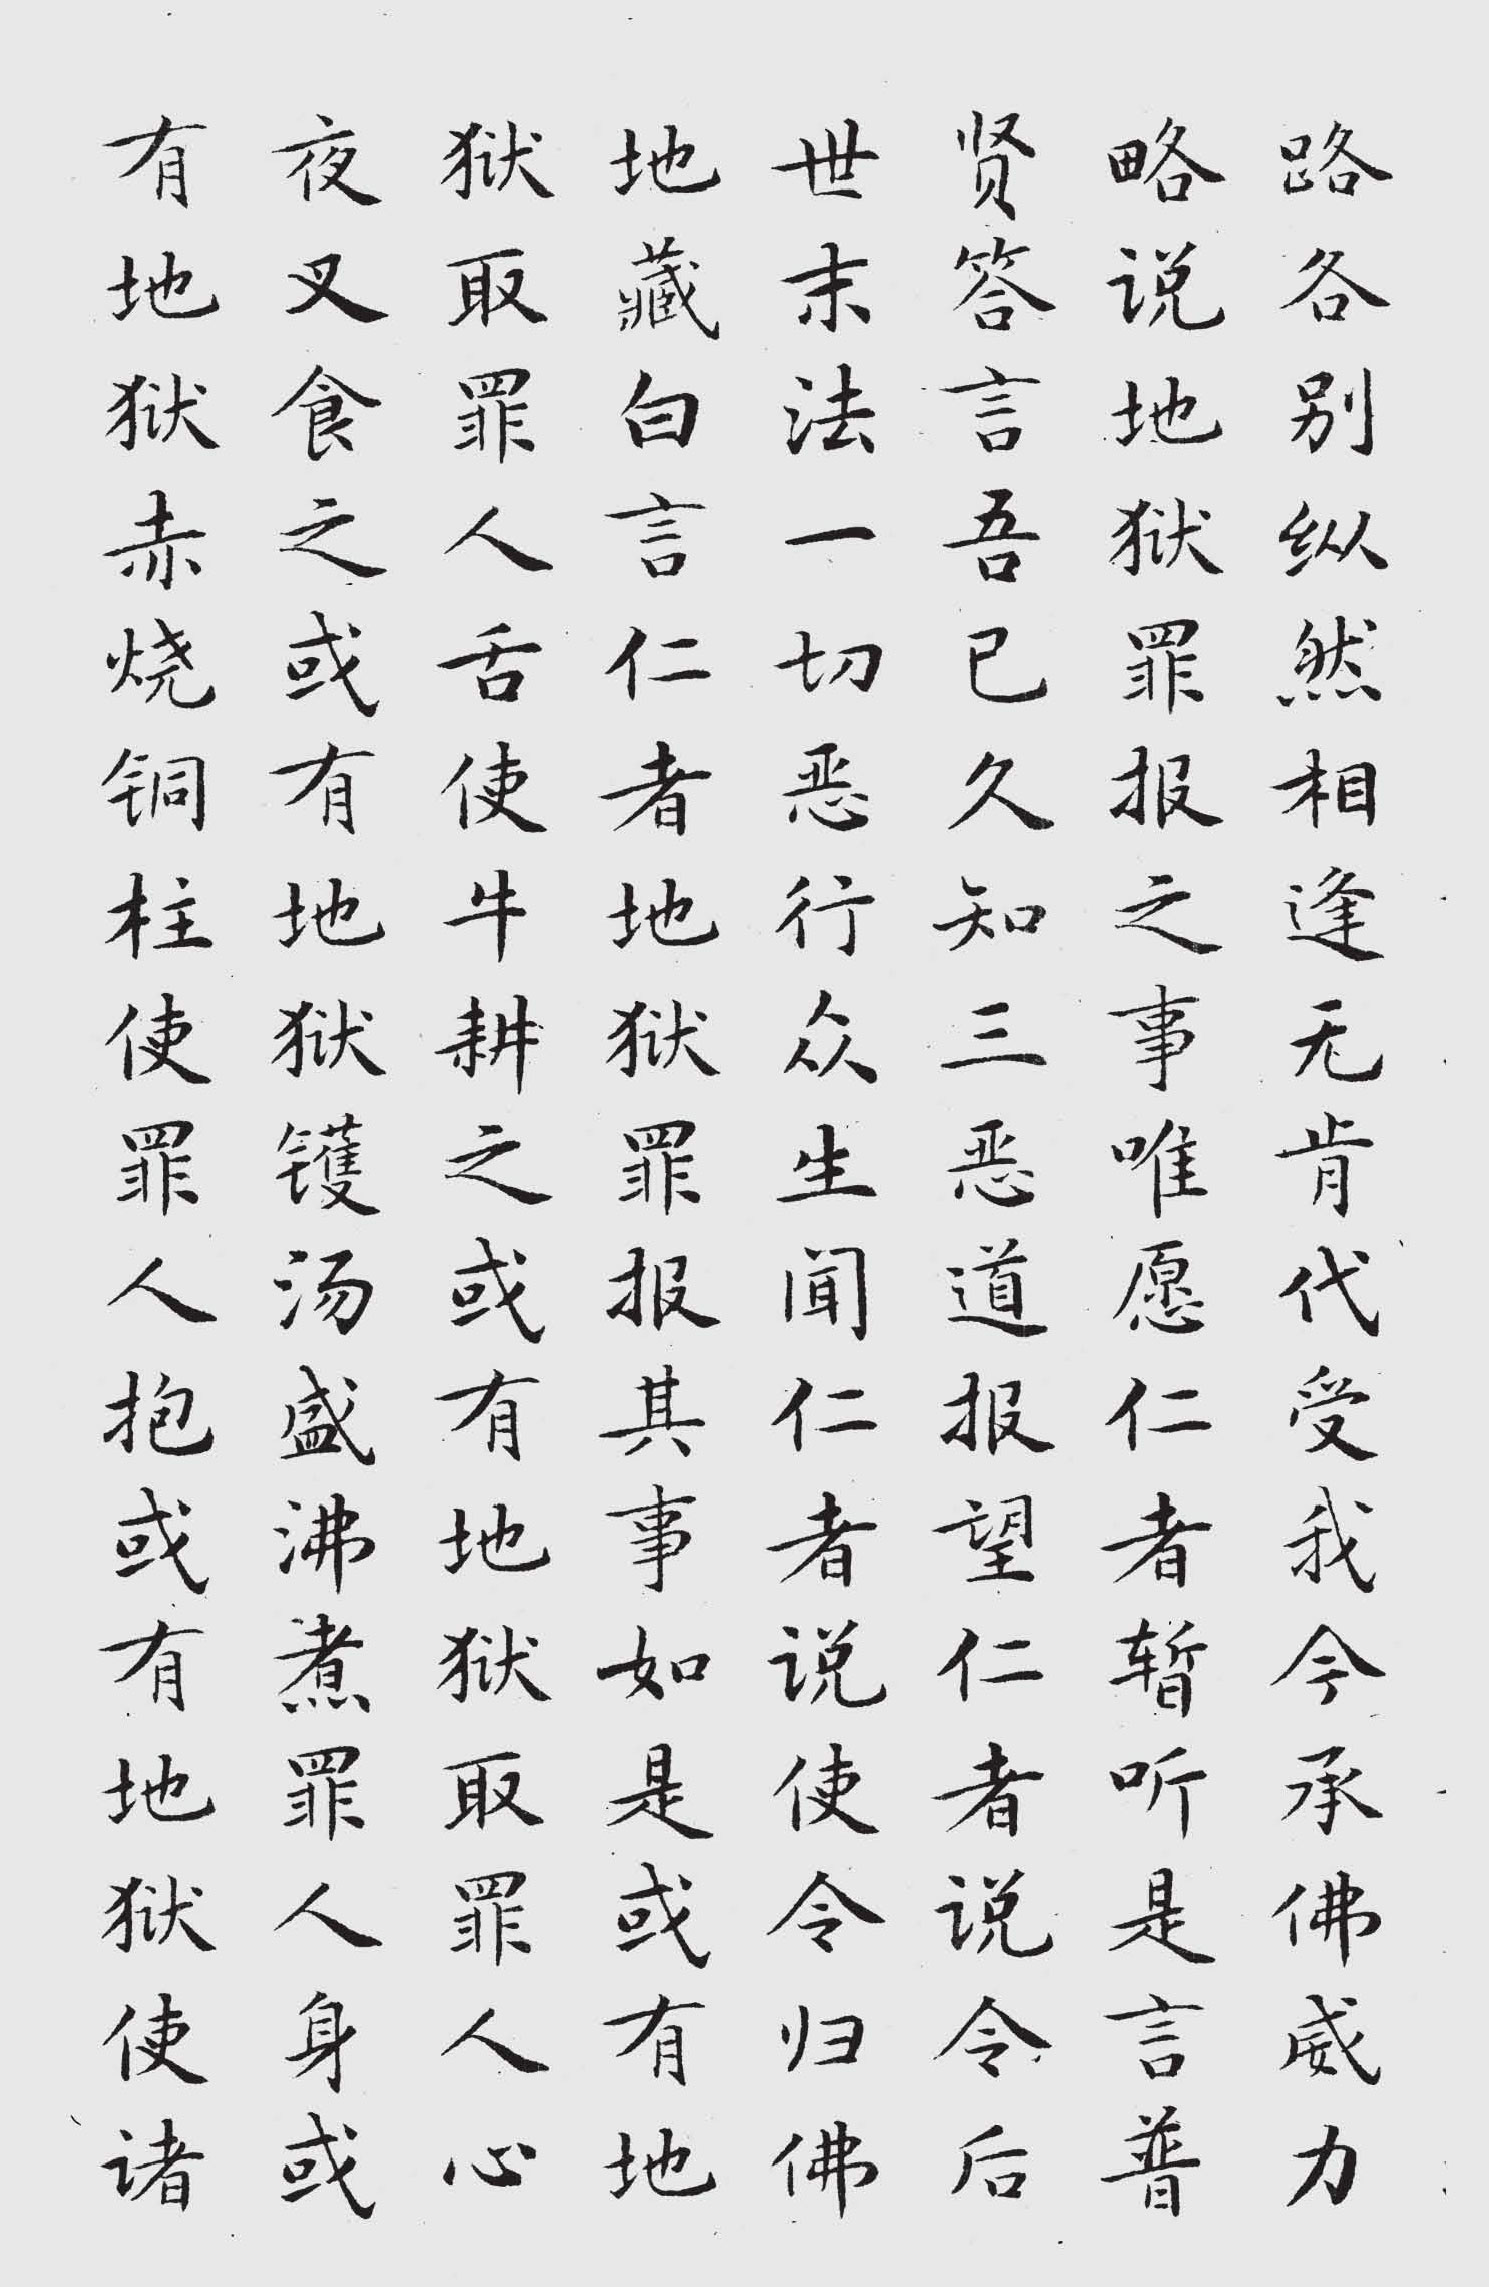 路各别纵然相逢无肯代受我今承佛威力
略说地狱罪报之事唯愿仁者暂听是言普
贤答言吾已久知三恶道报望仁者说令后
世末法一切恶行众生闻仁者说使令归佛
地藏白言仁者地狱罪报其事如是或有地
狱取罪人舌使牛耕之或有地狱取罪人心
夜叉食之或有地狱镬汤盛沸煮罪人身或
有地狱赤烧铜柱使罪人抱或有地狱使诸